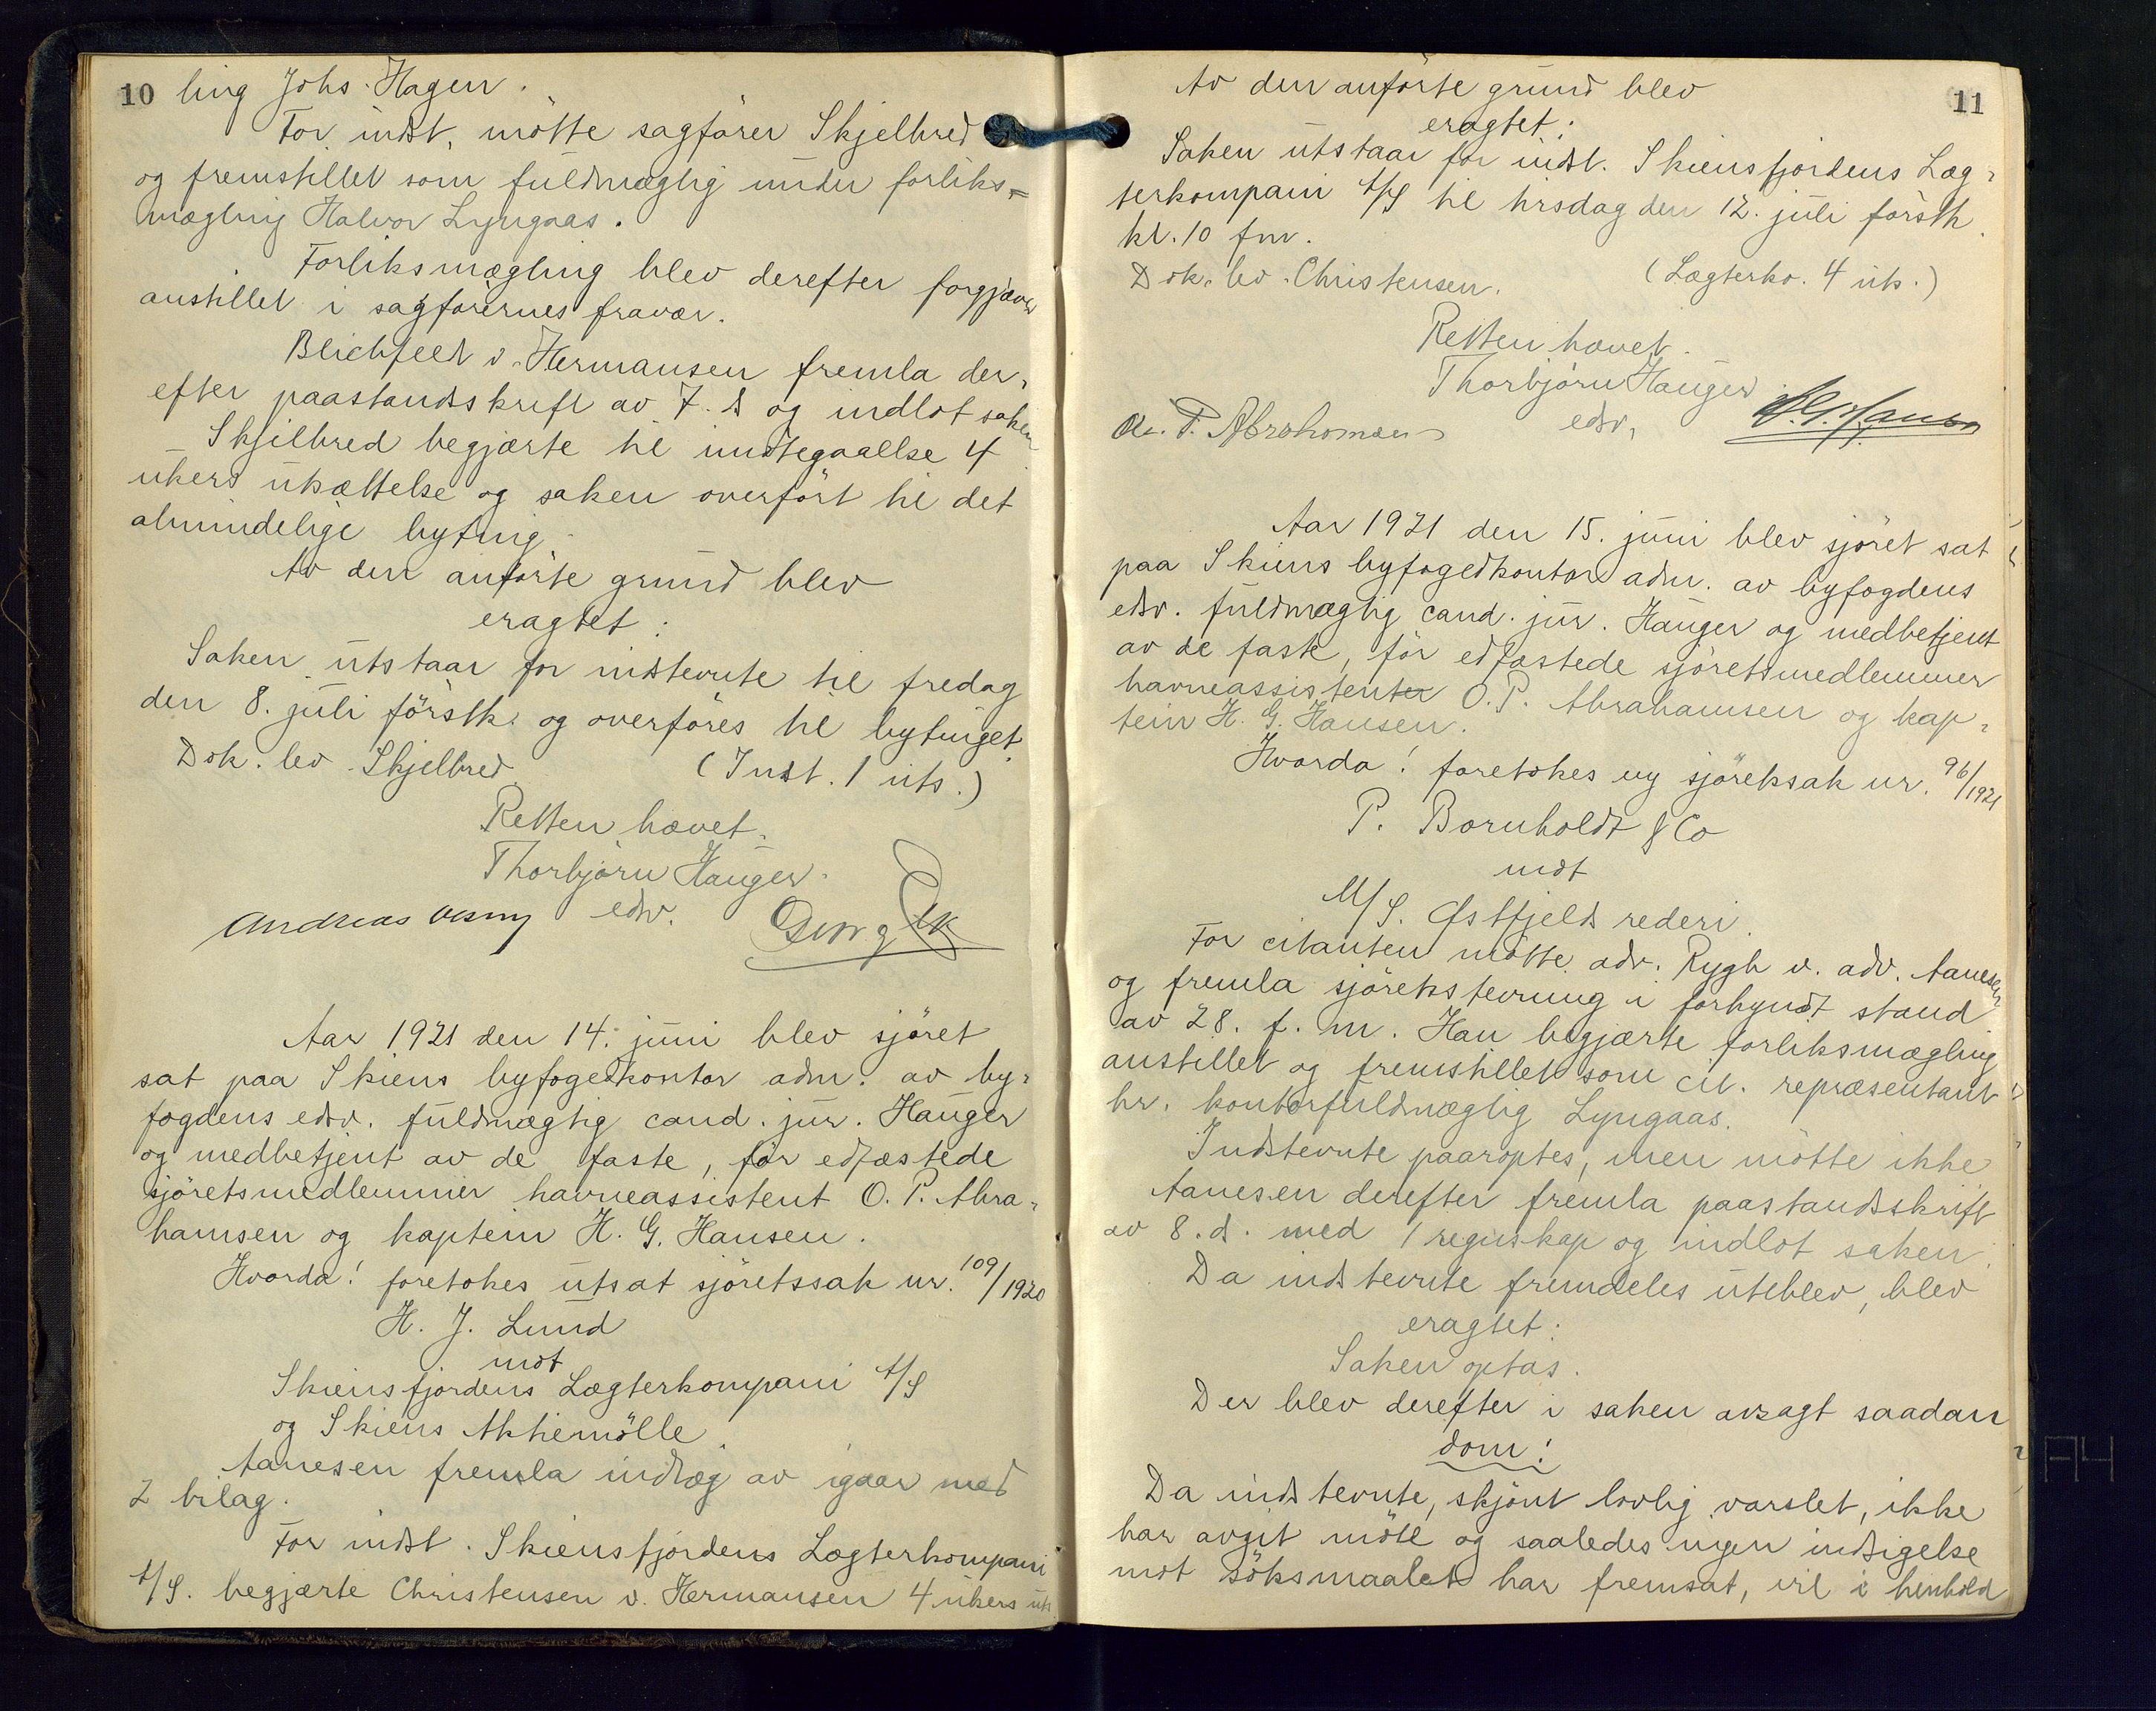 10 ling Johs. Hagen.
For indst. mötte sagförer Skjelbred
og fremstillet som fuldmægtig under forliks=
mægling Halvor Lyngaas.
Forliksmægling blev derefter forgjæves
anstillet i sagförernes fravær.
Blichfeldt v. Hermansen fremla der-
efter paastandsskrift av 7. ds og indlot saken
Skjelbred begjærte til imötegaaelse 4
ukers utsættelse og saken overfört til det
almindelige byting.
Av den anförte grund blev
eragtet:
Saken utstaar for indstevnte til fredag
den 8. juli förstk. og overföres til bytinget.
Dok. lev. Skjelbred (Indst. 1 uts.)
Retten hævet.
Thorbjörn Hauger.
edsv.
Andreas Georg
Aar 1921 den 14. juni blev sjöret
sat paa Skiens byfogedkontor adm. av by-
fogdens edsv. fuldmægtig cand. jur. Hauger
og medbetjent av de faste, för edfæstede
sjöretsmedlemmer havneassistent O. P. Abra-
hamsen og kaptein H. G. Hansen.
Hvorda! foretokes utsat sjöretssak nr. 109/1920
H. J. Lund
mot
Skiensfjordens Lægterkompani A/S
og Skiens Aktiemölle.
Aanesen fremla indlæg av igaar med
2 bilag.
For indst. Skiensfjordens Lægterkompani
A/S. begjærte Christensen v. Hermansen 4 ukers uts.
11
Av den anförte grund blev
eragtet:
Saken utstaar for indst. Skiensfjordens Læg-
terkompani A/S til tirsdag den 12. juli förstk.
kl. 10 fm.
Dok. lev. Christensen. (Lægterko. 4 uts.)
Retten hævet.
Thorbjörn Hauger
edsv.
O. P. Abrahamsen H. G. Hansen
Aar 1921 den 15. juni blev sjöret sat
paa Skiens byfogedkontor adm. av byfogdens
edsv. fuldmægtig cand. jur. Hauger og medbetjent
av de faste, för edfæstede sjöretsmedlemmer
havneassistenter O.P. Abrahamsen og kap-
tein H. G. Hansen.
Hvorda! foretokes ny sjöretssak nr. 96/1921
P. Bornholdt & Co
mot
M/S. Østfjelds rederi.
For citanten mötte adv. Rygh v. adv. Aanesen
og fremla sjöretsstevning i forkyndt stand
av 28. f. m. Han begjærte forliksmægling
anstillet og fremstillet som cit. repræsentant
hr. kontorfuldmægtig Lyngaas.
Indstevnte paaroptes, men mötte ikke
Aanesen derefter fremla paastandsskrift
av 8. ds. med 1 regnskap og indlot saken.
Da indstevnte fremdeles uteblev, blev
eragtet:
Saken optas.
Der blev derefter i saken avsagt saadan
dom:
Da indstevnte, skjönt lovlig varslet, ikke
har avgit möte og saaledes ingen indsigelse
mot söksmaalet har fremsat, vil i henhold